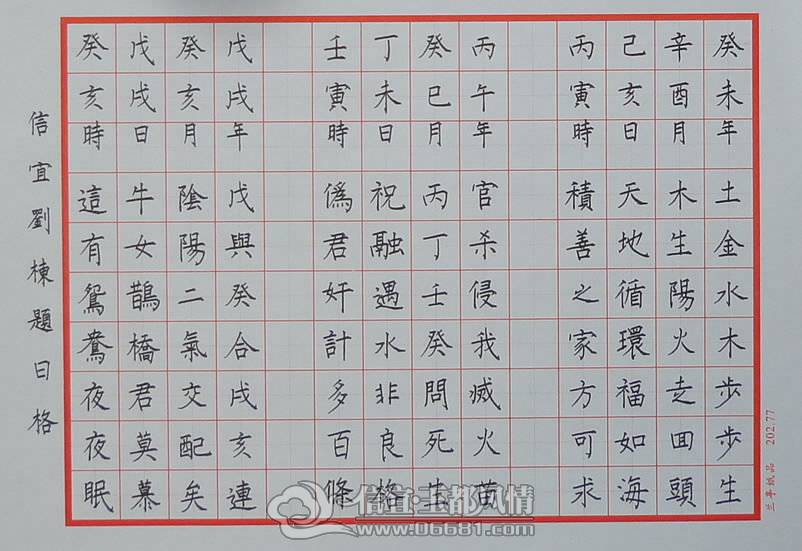 癸未年土金水木步步生
辛酉月木生陽火走回頭
己亥日天地循環福如海
丙寅時積善之家方可求
丙午年官杀侵我滅火苗
癸巳月丙丁壬癸問死生
丁未日祝融遇水非良格
壬寅時偽君奸計多百條
戊戌年戊與癸合戌亥連
癸亥月陰陽二氣交配矣
戊戌日牛女鵲橋君莫慕
癸亥時這有鴛鴦夜夜眠
信宜劉棟題日格
三年紙品 202.77
信宜·玉都风情
www.06681.com